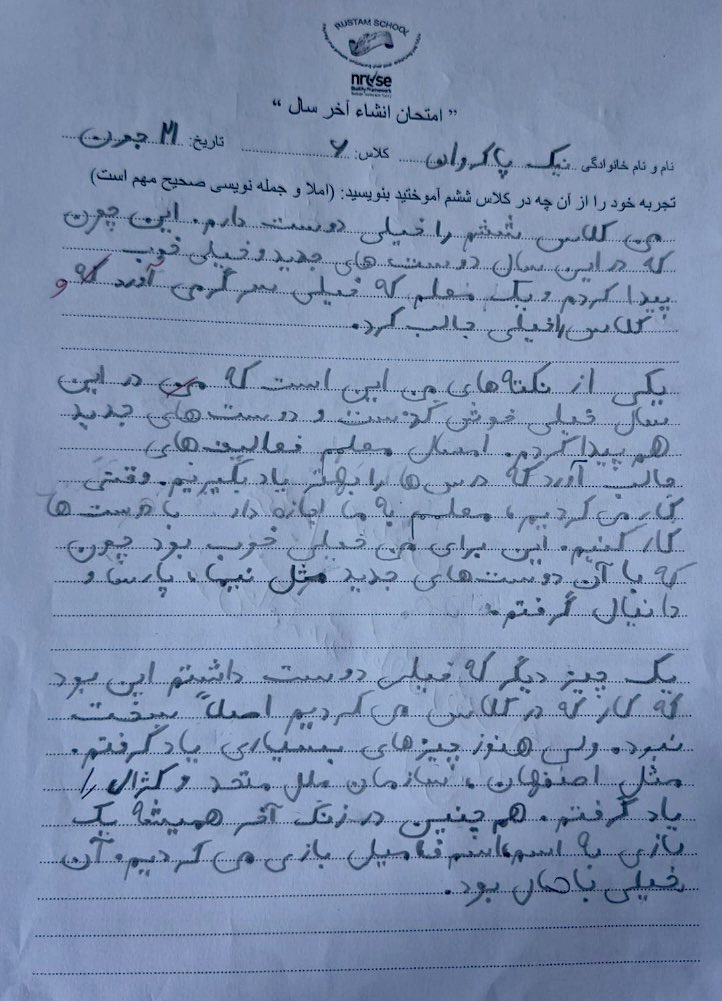 RUSTAM SCHOOL
nrcse
Quality Framework
" امتحان انشاء آخر سال "
نام و نام خانوادگی نیک پاکروان کلاس: ۶ تاریخ: ۲۱ جون
تجربه خود را از آن چه در کلاس ششم آموختید بنویسید: (املا و جمله نویسی صحیح مهم است)
من کلاس ششم را خیلی دوست دارم. این چون
که در این سال دوست های جدید و خیلی خوب
پیدا کردم و یک معلم که خیلی سرگرمی آورد که و
کلاس را خیلی جالب کرد.
یکی از نکته‌های من این است که من در این
سال خیلی خوش گذشت و دوست‌های جدید
هم پیدا کردم. امسال معلم فعالیت‌های
جالب آورد که درس‌ها را بهتر یاد بگیریم. وقتی
کار می کردیم، معلمم به ما اجازه داد با دوست ها
کار کنیم. این برای من خیلی خوب بود چون
که با آن دوست‌های جدید مثل نیما، پارسا و
دانیال گرفتم.
یک چیز دیگر که خیلی دوست داشتم این بود
که کار که در کلاس می کردیم اصلاً سخت
نبود. ولی هنوز چیزهای بسیاری یاد گرفتم.
مثل اصفهان، سازمان ملل متحد و کژال را
یاد گرفتم. هم چنین در زنگ آخر همیشه یک
بازی به اسم، اسم فامیل بازی می کردیم. آن
خیلی باحال بود.